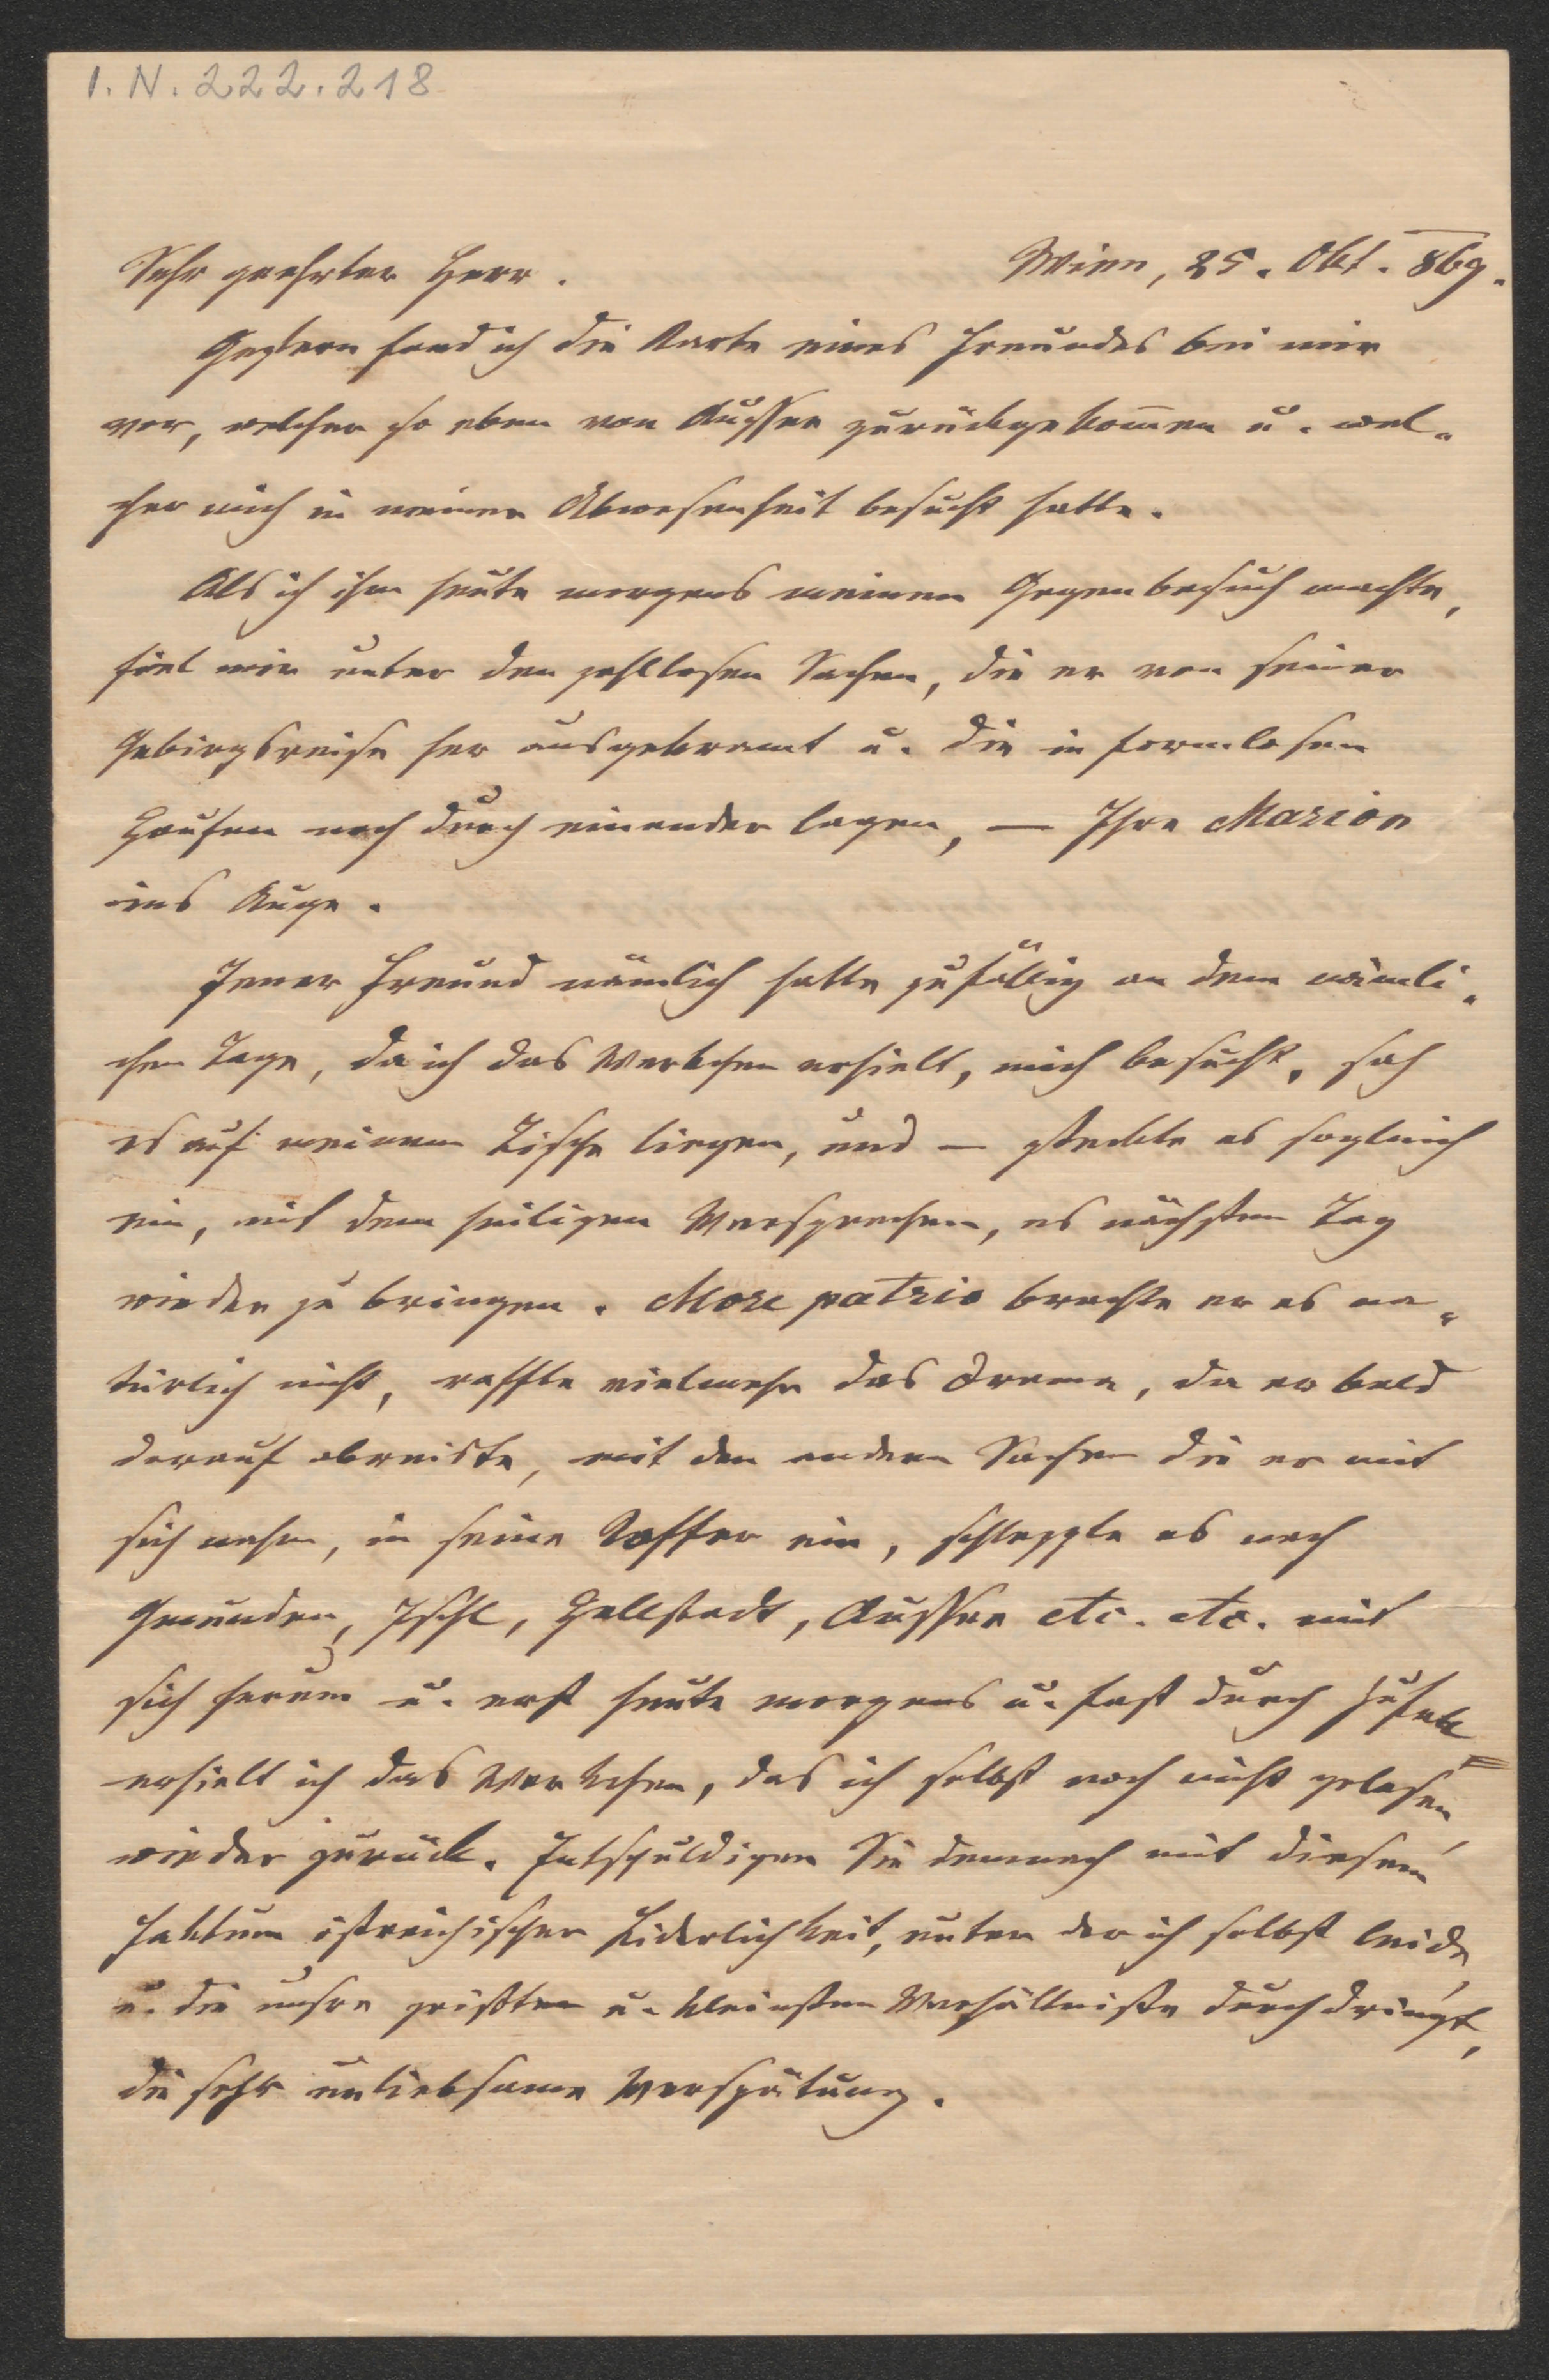 I. N. 222.218
Sehr geehrter Herr. Wien, 25. Okt. 869.
Gestern fand ich die Karte eines Freundes bei mir
vor, welcher so eben von Aussee zurückgekom̅en u. wel-
cher mich in meiner Abwesenheit besucht hatte.
Als ich ihm heute morgens meinen Gegenbesuch machte,
fiel mir unter den zahllosen Sachen, die er von seiner
Gebirgsreise her ausgekramt u. die in formlosen
Haufen noch durch einander lagen, — Ihre Marion
ins Auge.
Jener Freund nämlich hatte zufällig an dem nämli-
chen Tage, da ich das Werkchen erhielt, mich besucht, sah
es auf meinem Tische liegen, und — steckte es sogleich
ein, mit dem heiligen Versprechen, es nächsten Tag
wieder zu bringen. More patrio brachte er es na-
türlich nicht, raffte vielmehr das Drama, da er bald
darauf abreiste, mit den andern Sachen die er mit
sich nahm, in seine Koffer ein, schleppte es nach
Gmunden, Ischl, Hallstadt, Aussee etc. etc. mit
sich herum u. erst heute morgens u. fast durch Zufall
erhielt ich das Werkchen, das ich selbst noch nicht gelesen
wieder zurück. Entschuldigen Sie demnach mit diesem
Faktum östreichischer Liderlichkeit, unter der ich selbst leide
u. die unsre größten u. kleinsten Verhältniße durchdringt,
die sehr unliebsame Verspätung.